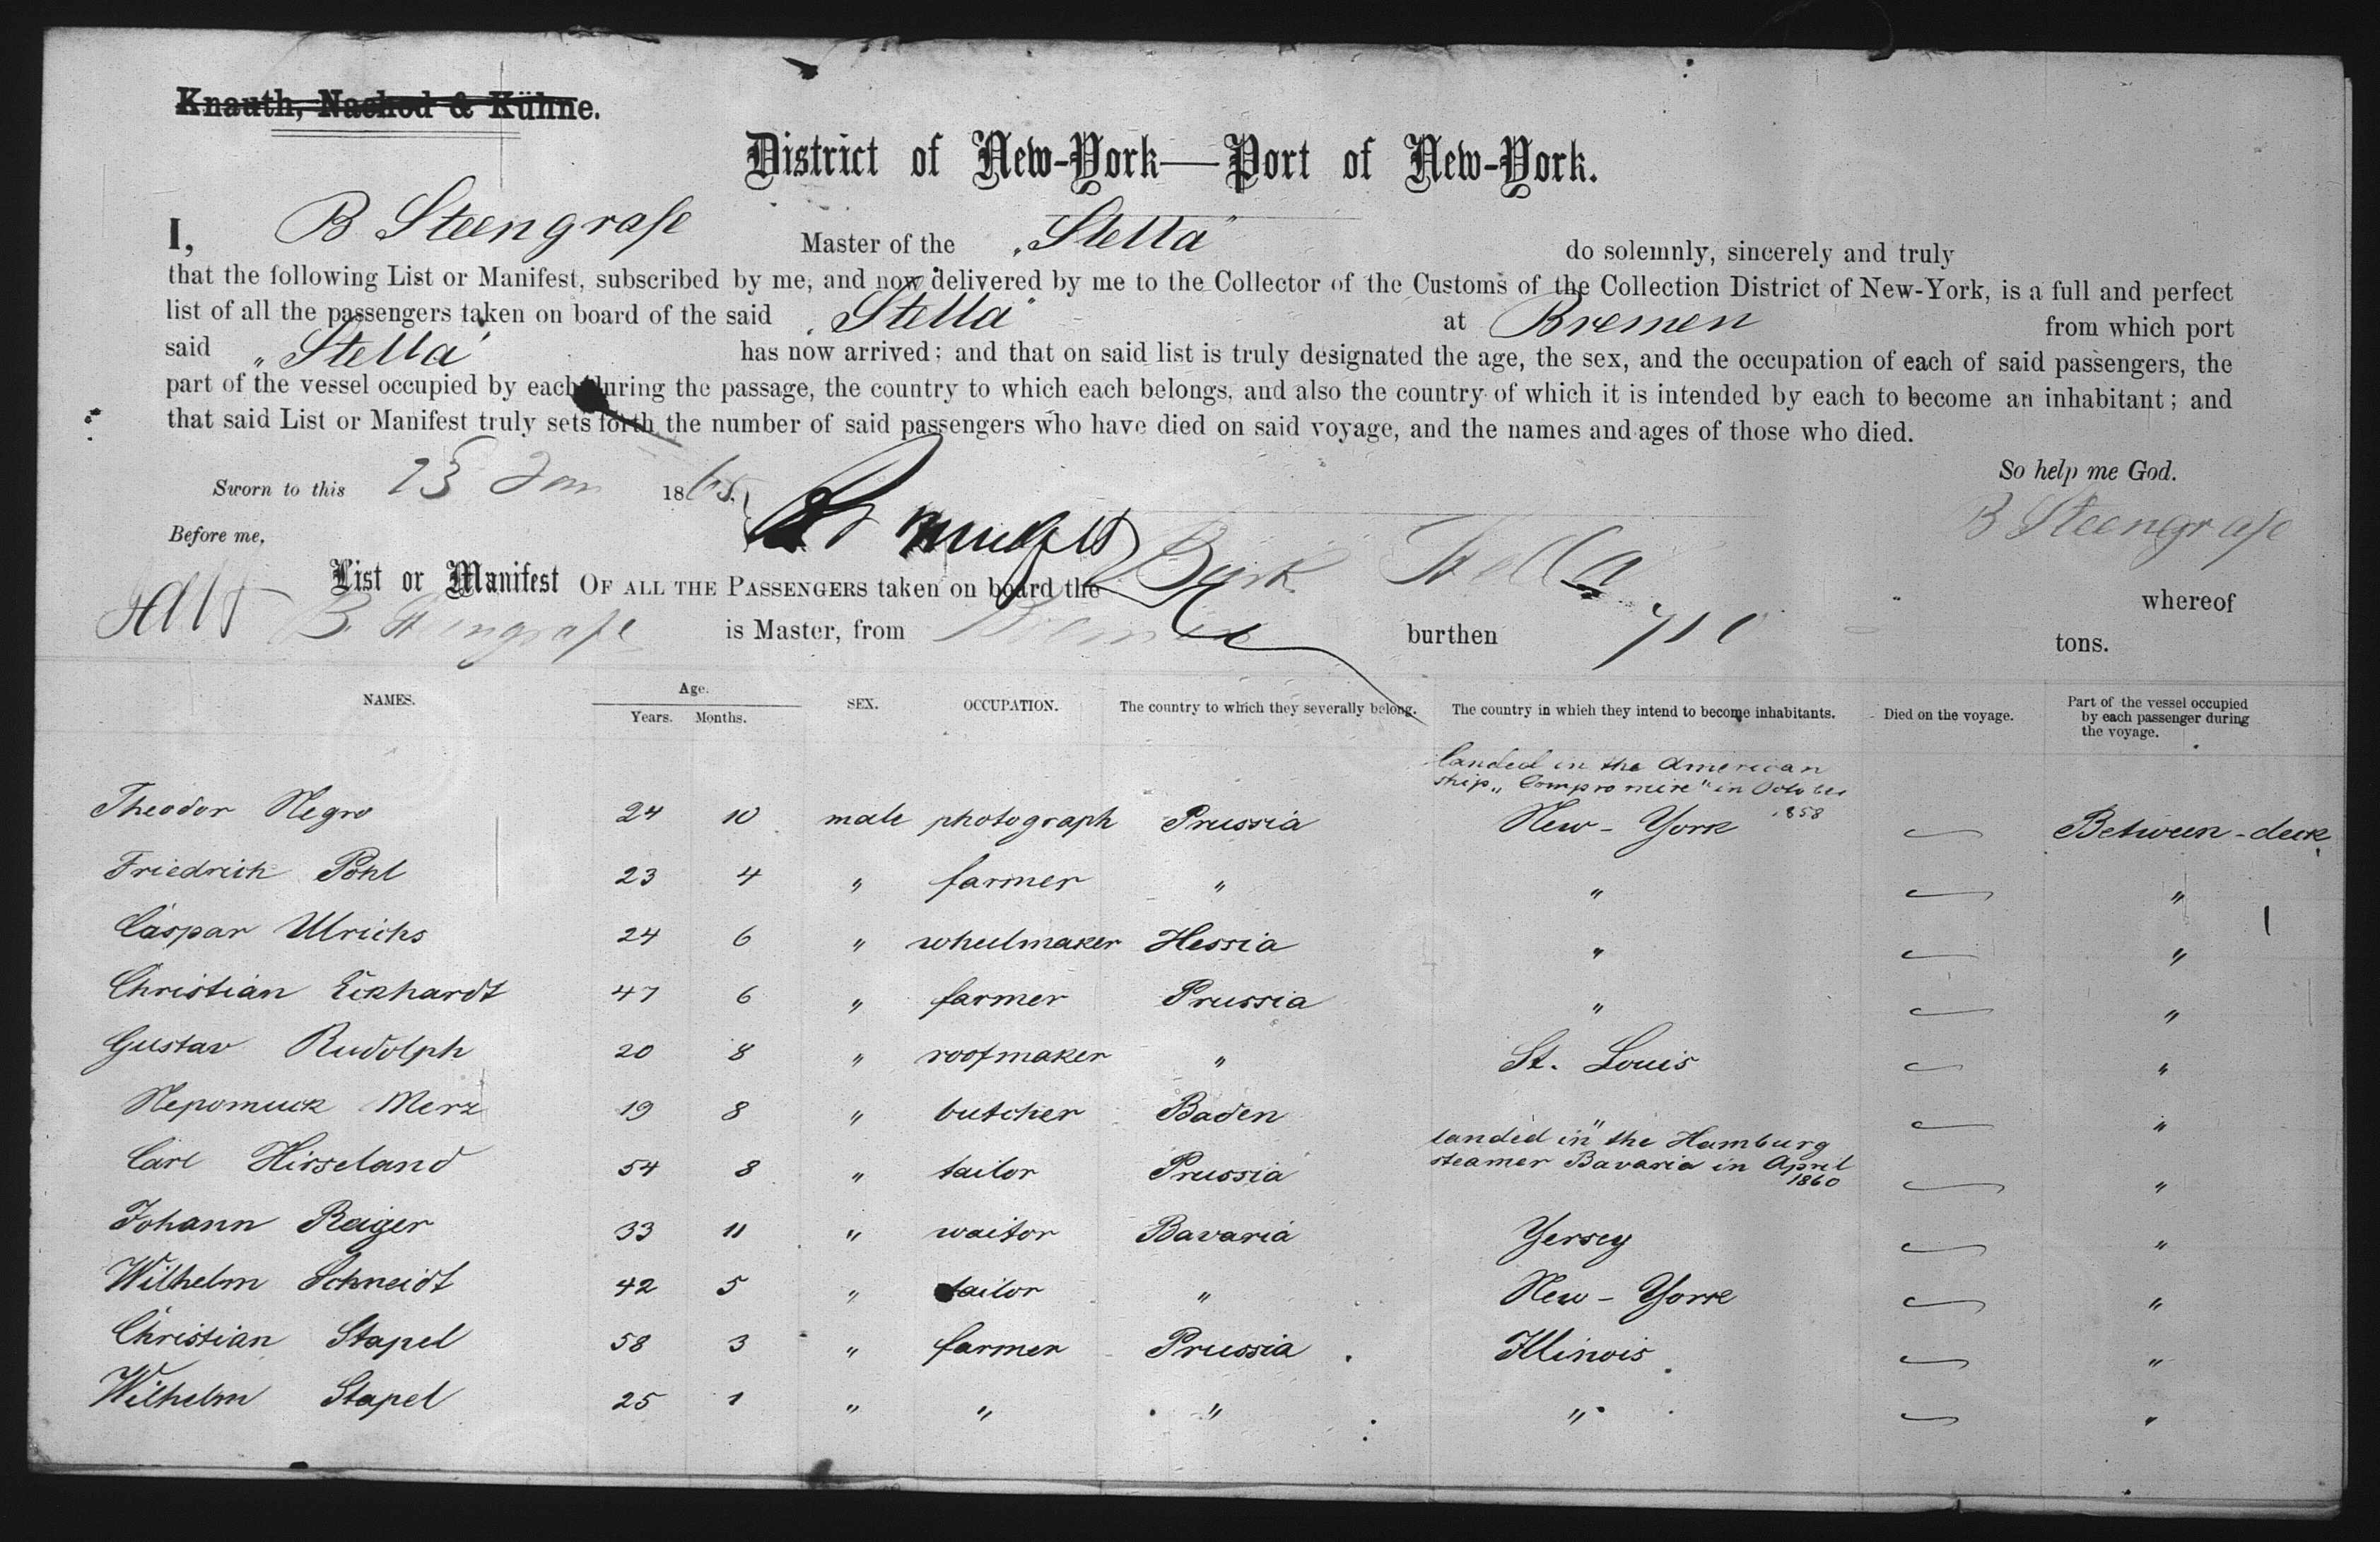 Knauth, Nachod & Kühne.
District of New-York—Port of New-York.
I, B Steengrafe Master of the „Stella" do solemnly, sincerely and truly
that the following List or Manifest, subscribed by me, and now delivered by me to the Collector of the Customs of the Collection District of New-York, is a full and perfect
list of all the passengers taken on board of the said „Stella" at Bremen from which port
said „Stella" has now arrived; and that on said list is truly designated the age, the sex, and the occupation of each of said passengers, the
part of the vessel occupied by each during the passage, the country to which each belongs, and also the country of which it is intended by each to become an inhabitant; and
that said List or Manifest truly sets forth the number of said passengers who have died on said voyage, and the names and ages of those who died.
So help me God.
Sworn to this 23 Jan 1865.
B Steengrafe
Before me,
List or Manifest OF ALL THE PASSENGERS taken on board the Bark Stella whereof
B. Steengrafe is Master, from Bremen burthen tons.
NAMES. Age. Years. Months. SEX. OCCUPATION. The country to which they severally belong. The country in which they intend to become inhabitants. Died on the voyage. Part of the vessel occupied by each passenger during the voyage.
landed in the American
ship „Compromire" in October
1858
Theodor Negro 24 10 male photograph Prussia New-York Between-deck
Friedrich Pohl 23 4 " farmer " " "
Caspar Ulrichs 24 6 " wheelmaker Hessia " "
Christian Eckhardt 47 6 " farmer Prussia " "
Gustav Rudolph 20 8 " roofmaker " St. Louis "
Nepomuck Merz 19 8 " butcher Baden " "
landed in the Hamburg
steamer Bavaria in April
1860
Carl Hirseland 54 8 " tailor Prussia "
Johann Reiger 33 11 " waitor Bavaria Yersey "
Wilhelm Schneidt 42 5 " tailor " New-York "
Christian Stapel 58 3 " farmer Prussia Illinois "
Wilhelm Stapel 25 1 " " " " "